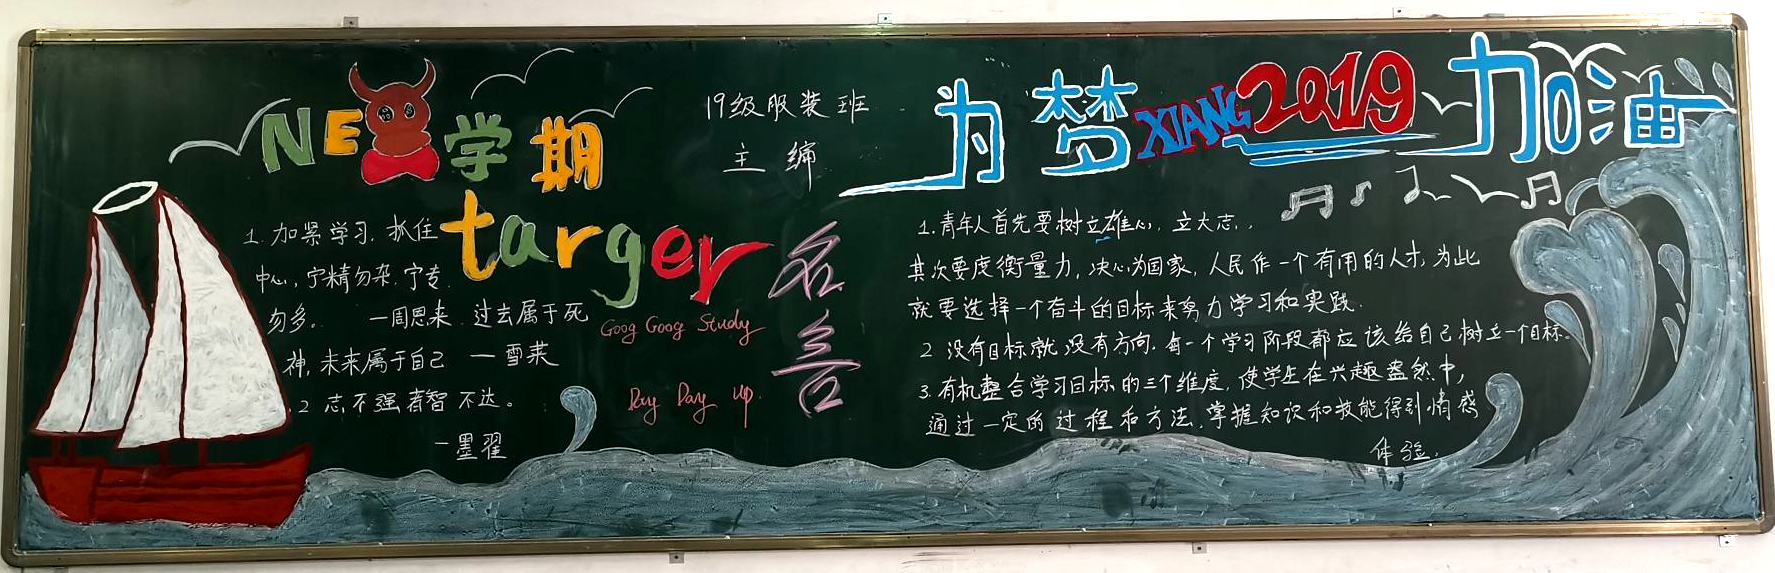 NE 学期
targer
19级服装班
主编
1. 加紧学习, 抓住
中心, 宁精勿杂, 宁专
勿多。 一周恩来 过去属于死
神, 未来属于自己 一雪莱
2 志不强者智不达。
一墨翟
Goog Goog Study
Day Day up
名言
为梦XIANG2019加油
1.青年人首先要树立雄心, 立大志,
其次要度衡量力, 决心为国家, 人民作一个有用的人才, 为此
就要选择一个奋斗的目标来努力学习和实践.
2 没有目标就没有方向. 每一个学习阶段都应该给自己树立一个目标。
3. 有机整合学习目标的三个维度, 使学生在兴趣盎然中,
通过一定的过程和方法, 掌握知识和技能得到情感
体验.